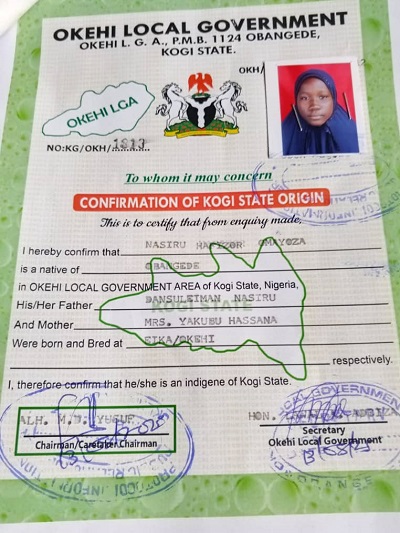 OKEHI LOCAL GOVERNMENT
OKEHI L. G. A., P.M.B. 1124 OBANGEDE,
KOGI STATE.
OKH/
OKEHI LGA
NO:KG/OKH/1913
To whom it may concern
CONFIRMATION OF KOGI STATE ORIGIN
This is to certify that from enquiry made,
I hereby confirm that NASIRU OMAYOZA
is a native of OBANGEDE
in OKEHI LOCAL GOVERNMENT AREA of Kogi State, Nigeria,
His/Her Father DANSULEIMAN NASIRU
KOGI STATE
And Mother MRS. YAKUBU HASSANA
Were born and Bred at EIKA/OKEHI
respectively.
I, therefore confirm that he/she is an indigene of Kogi State.
ALH. M.
Chairman/Caretaker Chairman
HON.
Secretary
Okehi Local Government